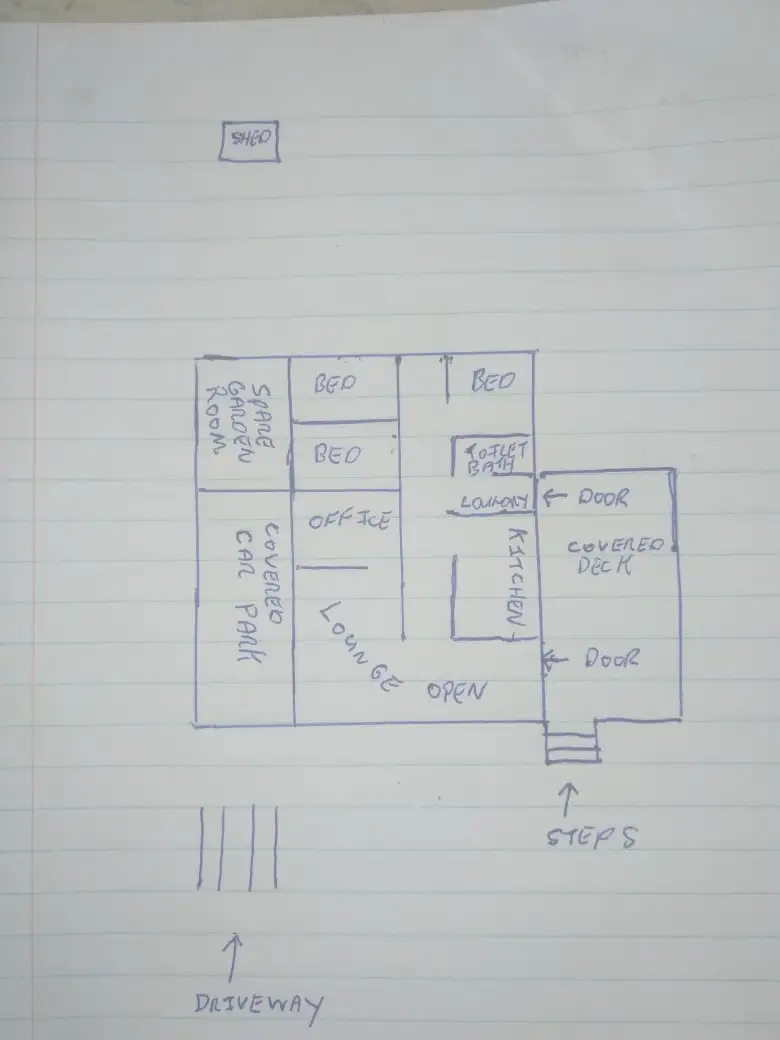 SHED
SPARE
GARDEN
ROOM
BED
BED
BED
TOILET
BATH
LOUNDRY
OFFICE
KITCHEN
COVERED
CAR PARK
LOUNGE
OPEN
← DOOR
COVERED
DECK
← DOOR
STEPS
DRIVEWAY